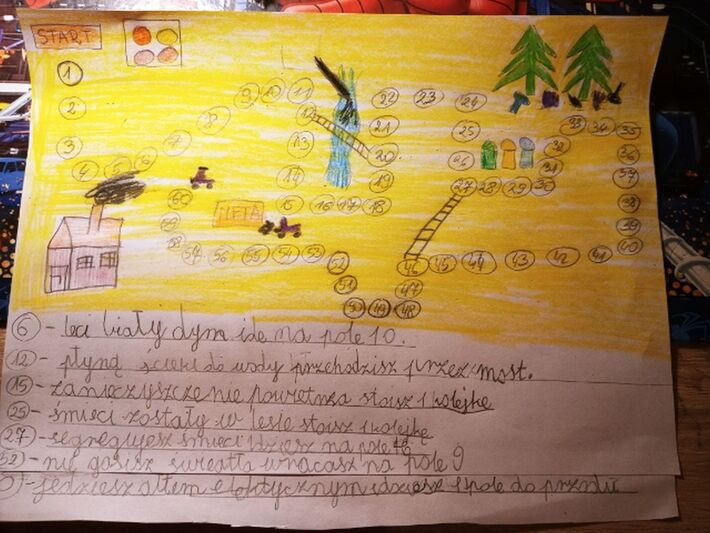 START
1
2
3
4 5 6 7 8 9 10 11
12
13
14
15 16 17 18
19
20
21
22 23 24
25
26
27 28 29 30
31
32
33 34 35
36
37
38
39
40
41 42 43 44 45 46
47
48 49 50
51
52
53 54 55 56 57
58
59
60
META
6 - leci biały dym idę na pole 10.
12 - płyną ścieki do wody przehodzisz przez most.
15 - zanieczyszczenie powietrza stoisz 1 kolejkę
25 - śmieci zostały w lesie stoisz 1 kolejkę
27 - segregujesz śmieci idziesz na pole 46
52 - nie gasisz światła wracasz na pole 9
jedziesz altem elektycznym idziesz 1 pole do przodu